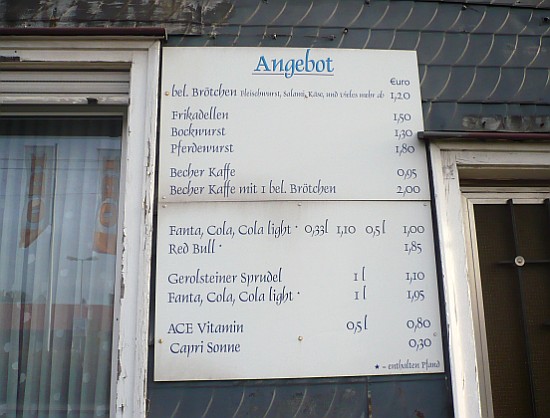 Angebot
€uro
bel. Brötchen Fleischwurst, Salami, Käse, und vieles mehr ab 1,20
Frikadellen 1,50
Bockwurst 1,30
Pferdewurst 1,80
Becher Kaffe 0,95
Becher Kaffe mit 1 bel. Brötchen 2,00
Fanta, Cola, Cola light * 0,33l 1,10 0,5l 1,00
Red Bull * 1,85
Gerolsteiner Sprudel 1 l 1,10
Fanta, Cola, Cola light * 1 l 1,95
ACE Vitamin 0,5 l 0,80
Capri Sonne 0,30
* = enthalten Pfand